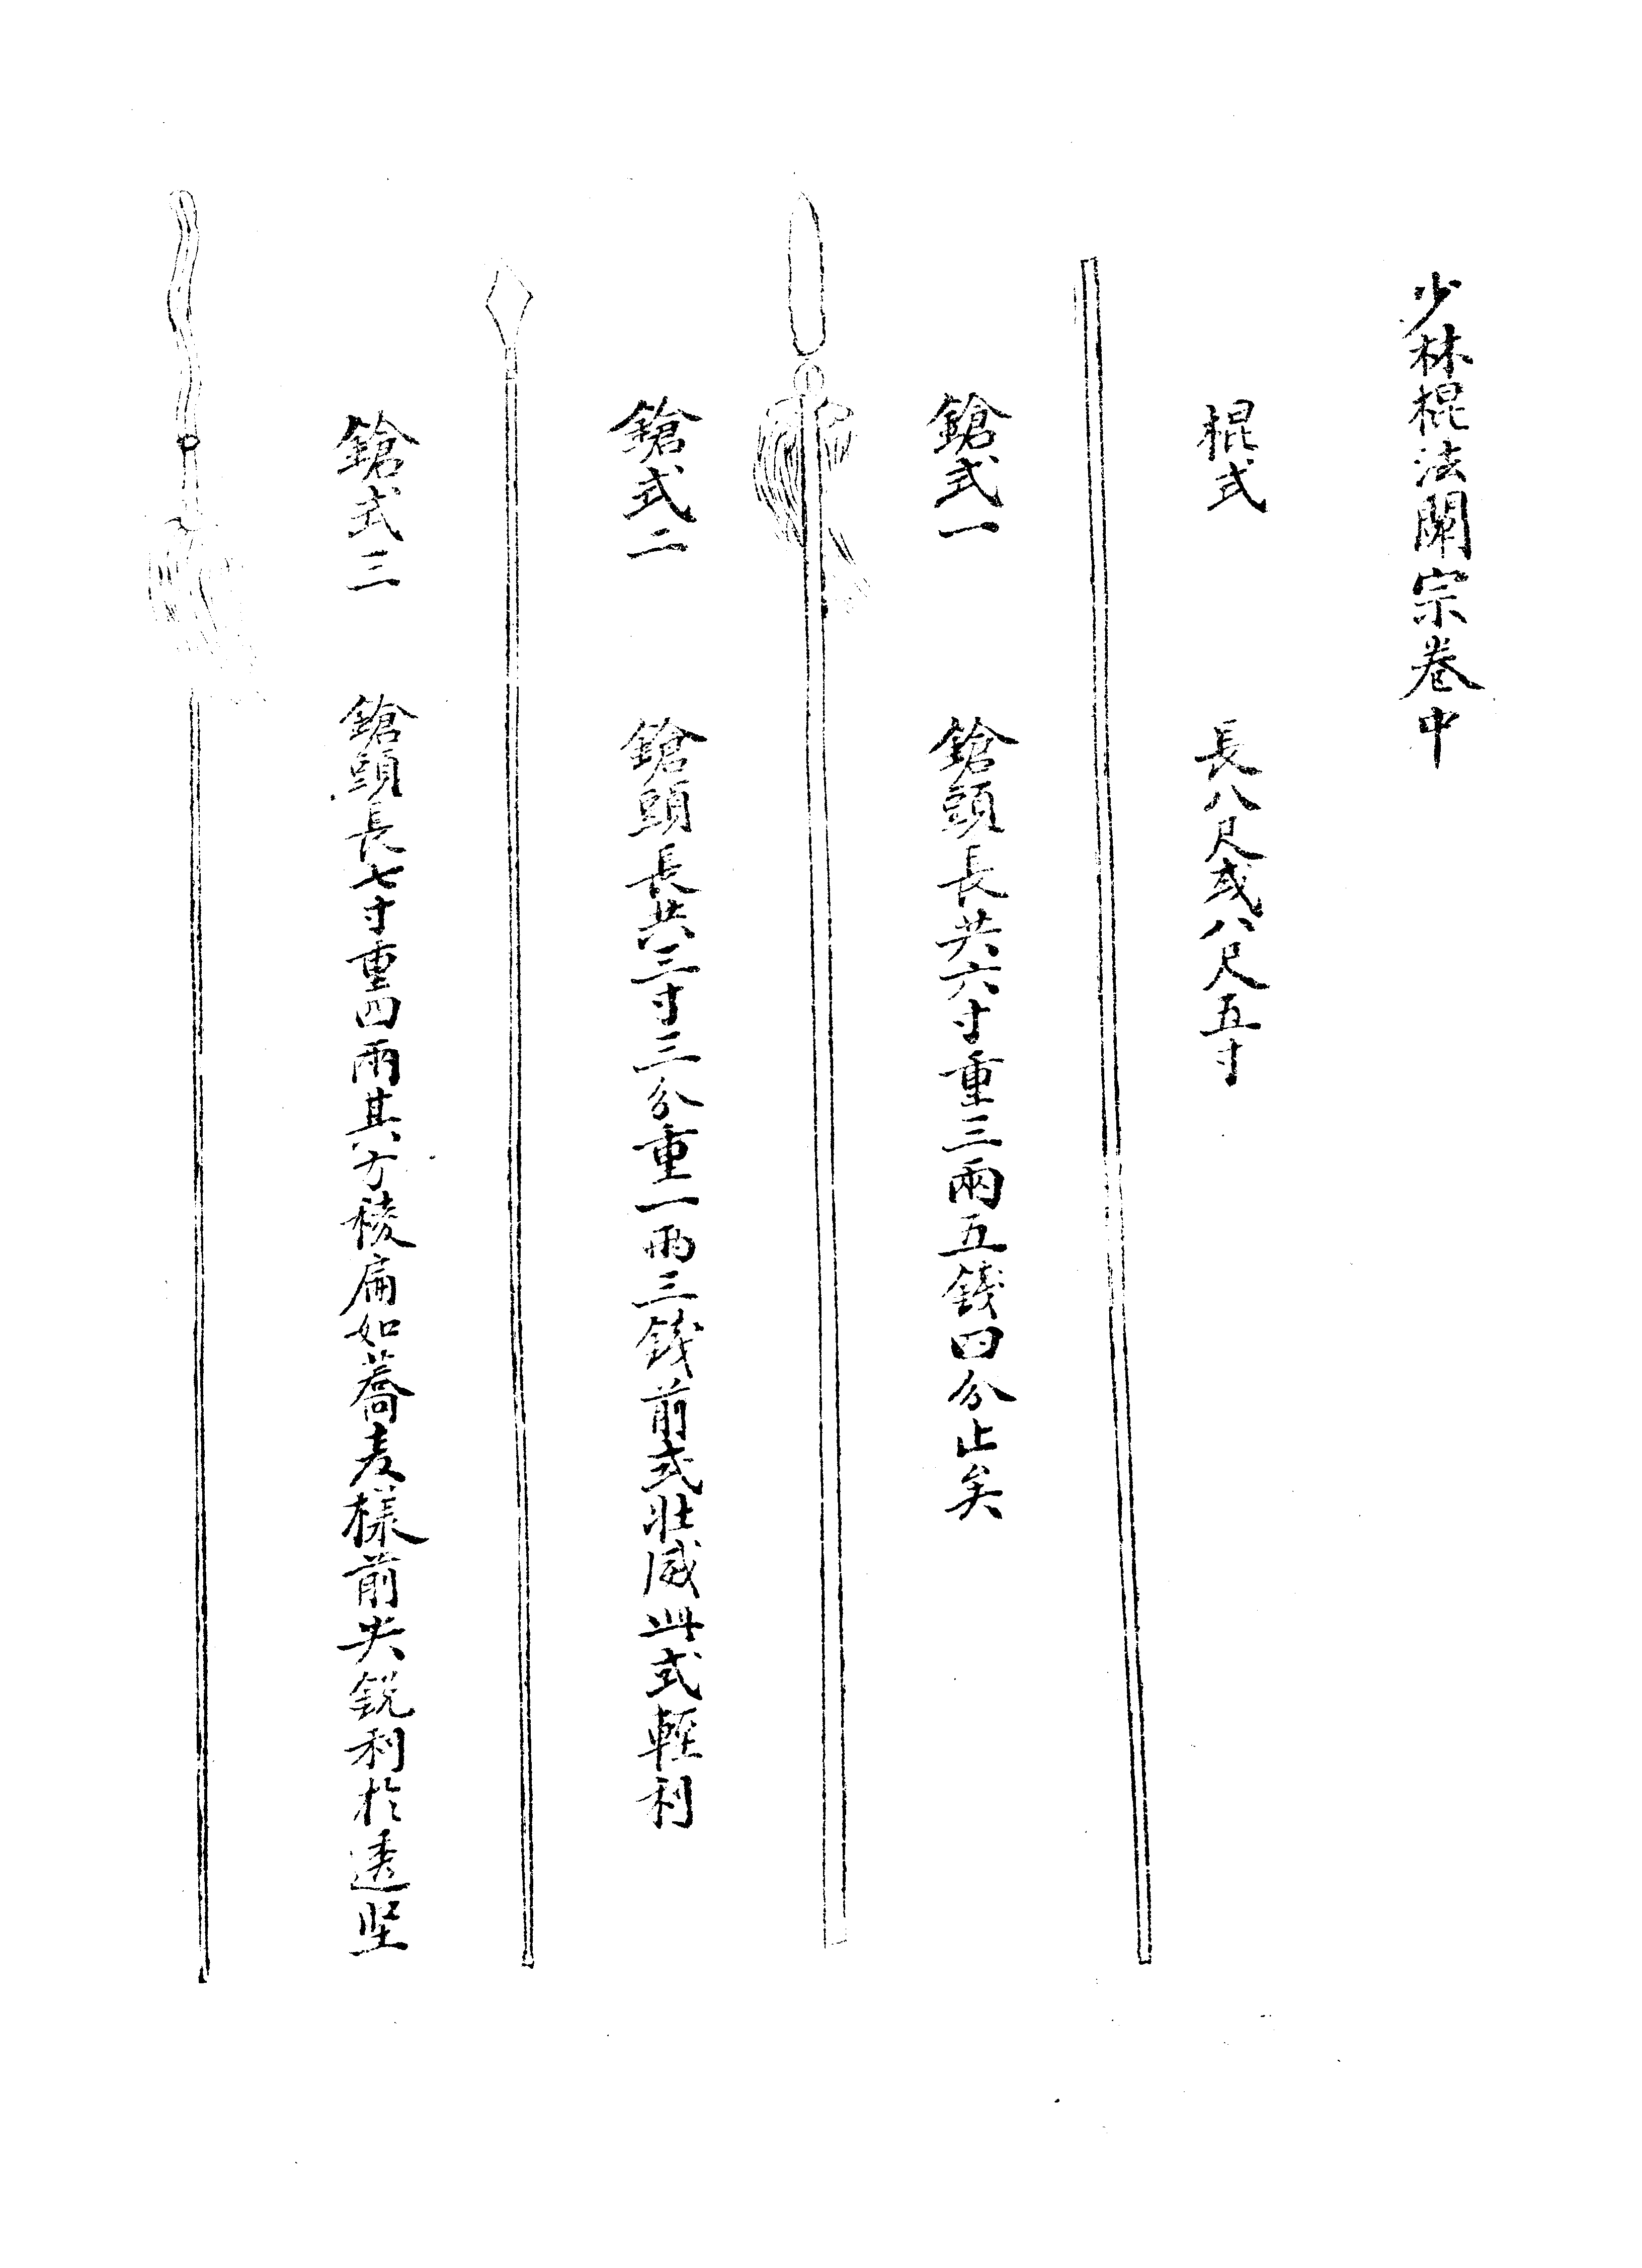 少林棍法闡宗卷中
棍式 長八尺或八尺五寸
鎗式一 鎗頭長共六寸重三兩五錢四分止矣
鎗式二 鎗頭長共三寸三分重一兩三錢前式壯威此式輕利
鎗式三 鎗頭長七寸重四兩其方稜扁如蕎麦樣前尖銳利於透坚